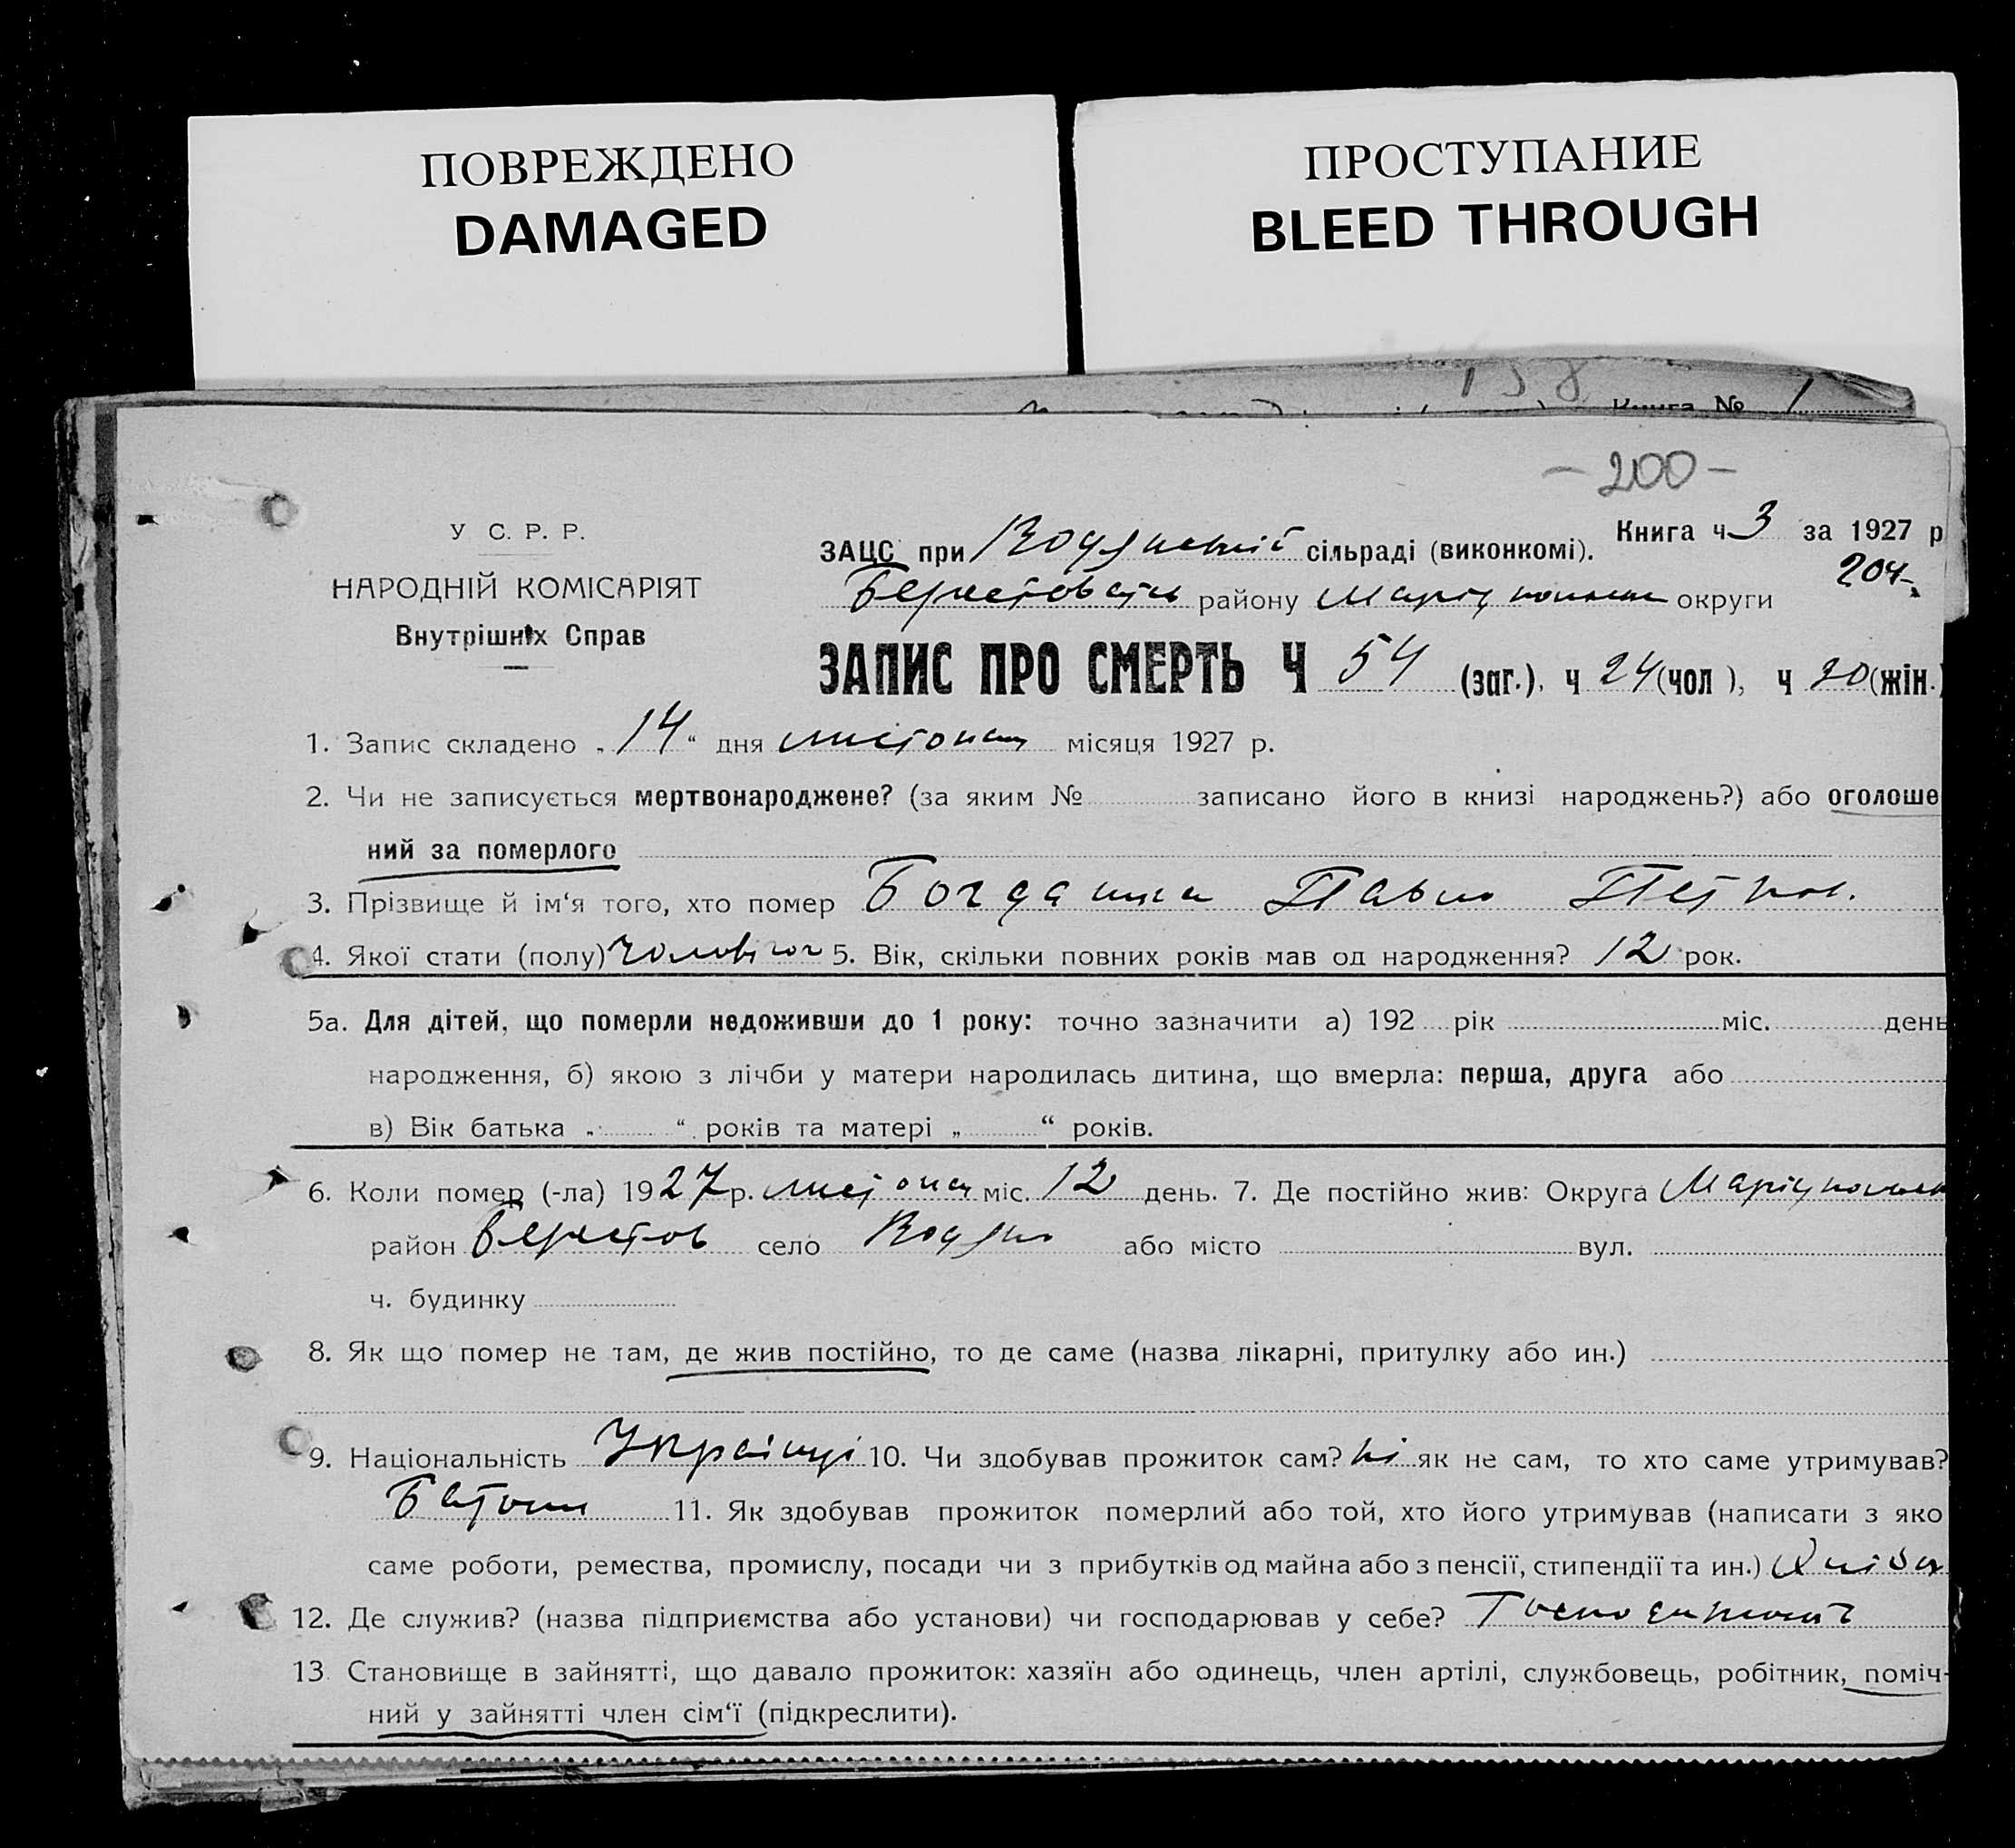 ПОВРЕЖДЕНО
DAMAGED
ПРОСТУПАНИЕ
BLEED THROUGH
158
Книга № 1
- 200 -
У С. Р. Р.
НАРОДНІЙ КОМІСАРІЯТ
Внутрішніх Справ
Книга ч 3 за 1927 р
204
ЗАЦС при сільраді (виконкомі).
району округи
ЗАПИС ПРО СМЕРТЬ Ч 54 (заг.), ч 24 (чол), ч 20 (жін.)
1. Запис складено „ 14 “ дня листопад місяця 1927 р.
2. Чи не записується мертвонароджене? (за яким № записано його в книзі народжень?) або оголоше
ний за померлого
3. Прізвище й ім‘я того, хто помер Павло Петров.
4. Якої стати (полу) 5. Вік, скільки повних років мав од народження? 12 рок.
5а. Для дітей, що померли недоживши до 1 року: точно зазначити а) 192 рік міс. день
народження, б) якою з лічби у матери народилась дитина, що вмерла: перша, друга або
в) Вік батька „ “ років та матері „ “ років.
6. Коли помер (-ла) 1927 р. листопад міс. 12 день. 7. Де постійно жив: Округа
район Берестов село Водяно або місто вул.
ч. будинку
8. Як що помер не там, де жив постійно, то де саме (назва лікарні, притулку або ин.)
9. Національність 10. Чи здобував прожиток сам? ні як не сам, то хто саме утримував?
11. Як здобував прожиток померлий або той, хто його утримував (написати з яко
саме роботи, ремества, промислу, посади чи з прибутків од майна або з пенсії, стипендії та ин.)
12. Де служив? (назва підприємства або установи) чи господарював у себе?
13. Становище в зайнятті, що давало прожиток: хазяїн або одинець, член артілі, службовець, робітник, поміч-
ний у зайнятті член сім‘ї (підкреслити).